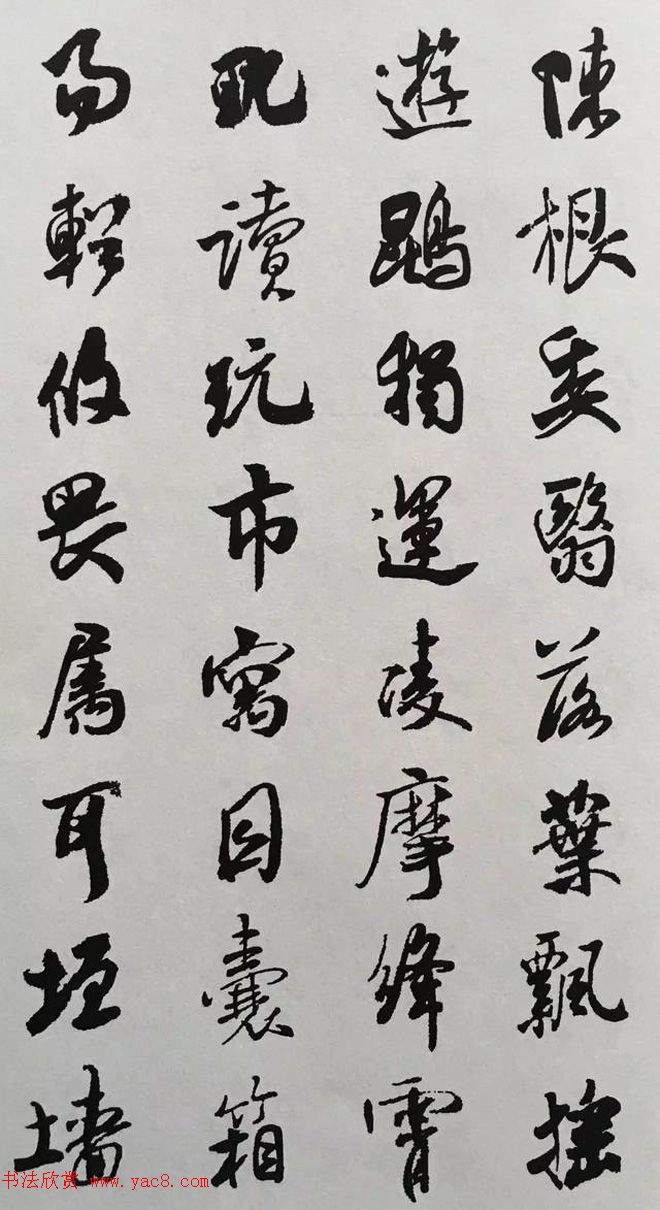 陳根委翳落葉飄摇
遊鵾獨運凌摩絳霄
耽讀玩市寓目囊箱
易輶攸畏属耳垣墙
书法欣赏 www.yac8.com